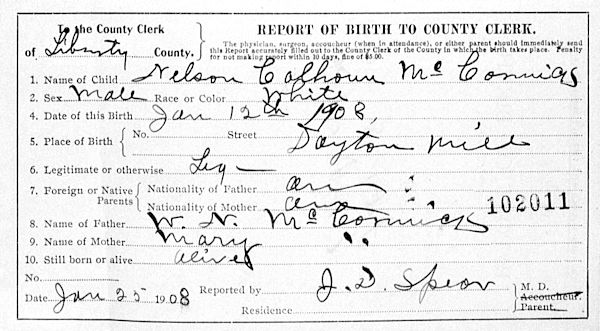 To the County Clerk
of Liberty County.
REPORT OF BIRTH TO COUNTY CLERK.
The physician, surgeon, accoucheur (when in attendance), or either parent should immediately send
this Report accurately filled out to the County Clerk of the County in which the birth takes place. Penalty
for not making report within 10 days, fine of $5.00.
1. Name of Child Nelson Calhoun Mc Cormick
2. Sex Male Race or Color White
4. Date of this Birth Jan 12th 1908,
5. Place of Birth No. Street Dayton Mill
6. Legitimate or otherwise Leg
7. Foreign or Native Parents
Nationality of Father am "
Nationality of Mother am "
102011
8. Name of Father W. N. Mc Cormick
9. Name of Mother Mary "
10. Still born or alive alive
No.
Date Jan 25 1908 Reported by J. D. Spear M. D.
Accoucheur.
Residence Parent.